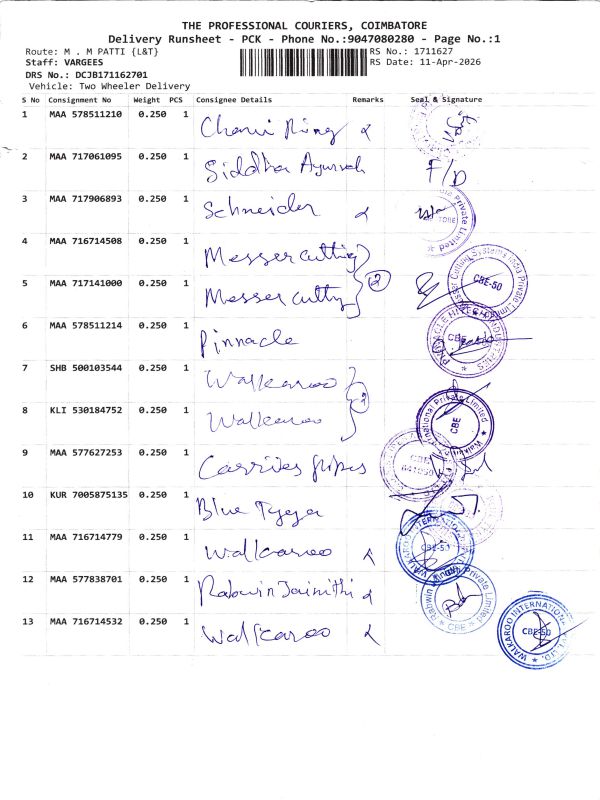 THE PROFESSIONAL COURIERS, COIMBATORE
Delivery Runsheet - PCK - Phone No.:9047080280 - Page No.:1
Route: M . M PATTI {L&T} RS No.: 1711627
Staff: VARGEES RS Date: 11-Apr-2026
DRS No.: DCJB171162701
Vehicle: Two Wheeler Delivery
S No Consignment No Weight PCS Consignee Details Remarks Seal & Signature
1 MAA 578511210 0.250 1
2 MAA 717061095 0.250 1 Siddha F/D
3 MAA 717906893 0.250 1 Schneider
4 MAA 716714508 0.250 1 Messer cutting
5 MAA 717141000 0.250 1 Messer cutting 2 CBE-50
6 MAA 578511214 0.250 1 Pinnacle
7 SHB 500103544 0.250 1 Walkaroo
8 KLI 530184752 0.250 1 Walkaroo CBE
9 MAA 577627253 0.250 1
10 KUR 7005875135 0.250 1 Blue
11 MAA 716714779 0.250 1 Walkaroo WALKAROO INTERNATIONAL CBE-50
12 MAA 577838701 0.250 1 Rabwin Rabwin Private Limited CBE
13 MAA 716714532 0.250 1 Walkaroo WALKAROO INTERNATIONAL CBE-50